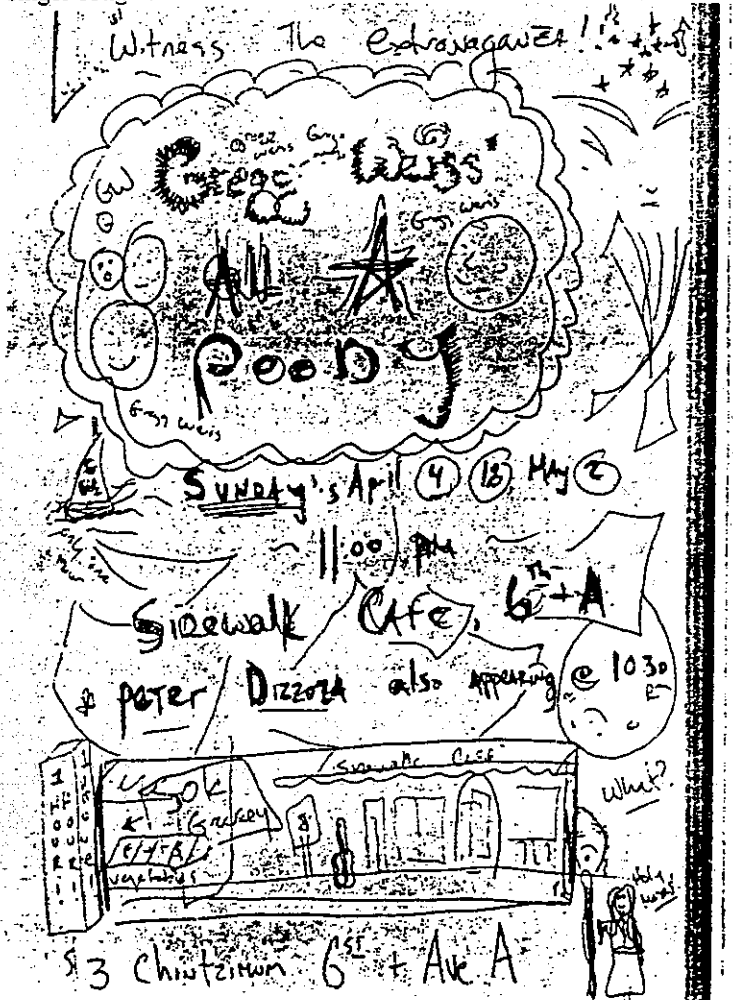 Witness The extravaganza!
Gregg Weiss
Gregg Weiss'
GW
Gregg Weiss
All
Poody
Gregg Weiss
Sunday's April 4 18 May 2
11:00 PM
Sidewalk Cafe, 6th + A
& Peter Dizzoza also appearing @ 1030
Sidewalk Cafe
What?
1 HOUR!
1 HOUR!
Grocery
vegetables
$3 Chintzimum 6st + Ave A